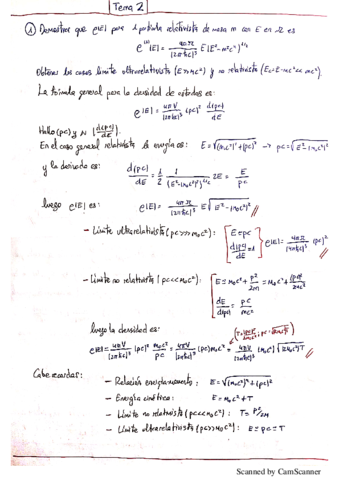 Tema 2
① Demostrar que ρ(E) para 1 partícula relativista de masa m con E en Ω es
ρ⁽¹⁾(E) = 4πΩ/(2πħc)³ E(E²-m²c⁴)^(1/2)
Obtener los casos límite ultrarelativista (E>>mc²) y no relativista (Ec=E-mc²<<mc²)
La fórmula general para la densidad de estados es:
ρ(E) = 4πV/(2πħc)³ (pc)² d(pc)/dE
Hallo (pc) y d(pc)/dE.
En el caso general relativista la energía es: E=√((m₀c²)²+(pc)²) → pc=√(E²-(m₀c²)²)
y la derivada es: d(pc)/dE = 1/2 1/(E²-(m₀c²)²)^(1/2) 2E = E/pc
luego ρ(E) es: ρ(E) = 4πΩ/(2πħc)³ E √(E²-(m₀c²)²)
- Límite ultrarelativista (pc>>>m₀c²): [E=pc
d(pc)/dE=1] ρ(E)=4πΩ/(2πħc)³ (pc)²
- Límite no relativista (pc<<m₀c²): [E=m₀c²+p²/2m=m₀c²+(pc)²/2mc²
dE/d(pc) = pc/mc²
luego la densidad es:
ρ(E)=4πV/(2πħc)³ (pc)² m₀c²/pc = 4πV/(2πħc)³ (pc)m₀c² = 4πV/(2πħc)³ (m₀c²)√(2m₀c²)T
Cabe recordar:
- Relación energía-momento: E=√((m₀c²)²+(pc)²)
- Energía cinética: E=m₀c²+T
- Límite no relativista (pc<<m₀c²): T=p²/2m
- Límite ultrarelativista (pc>>m₀c²): E=pc=T
Scanned by CamScanner